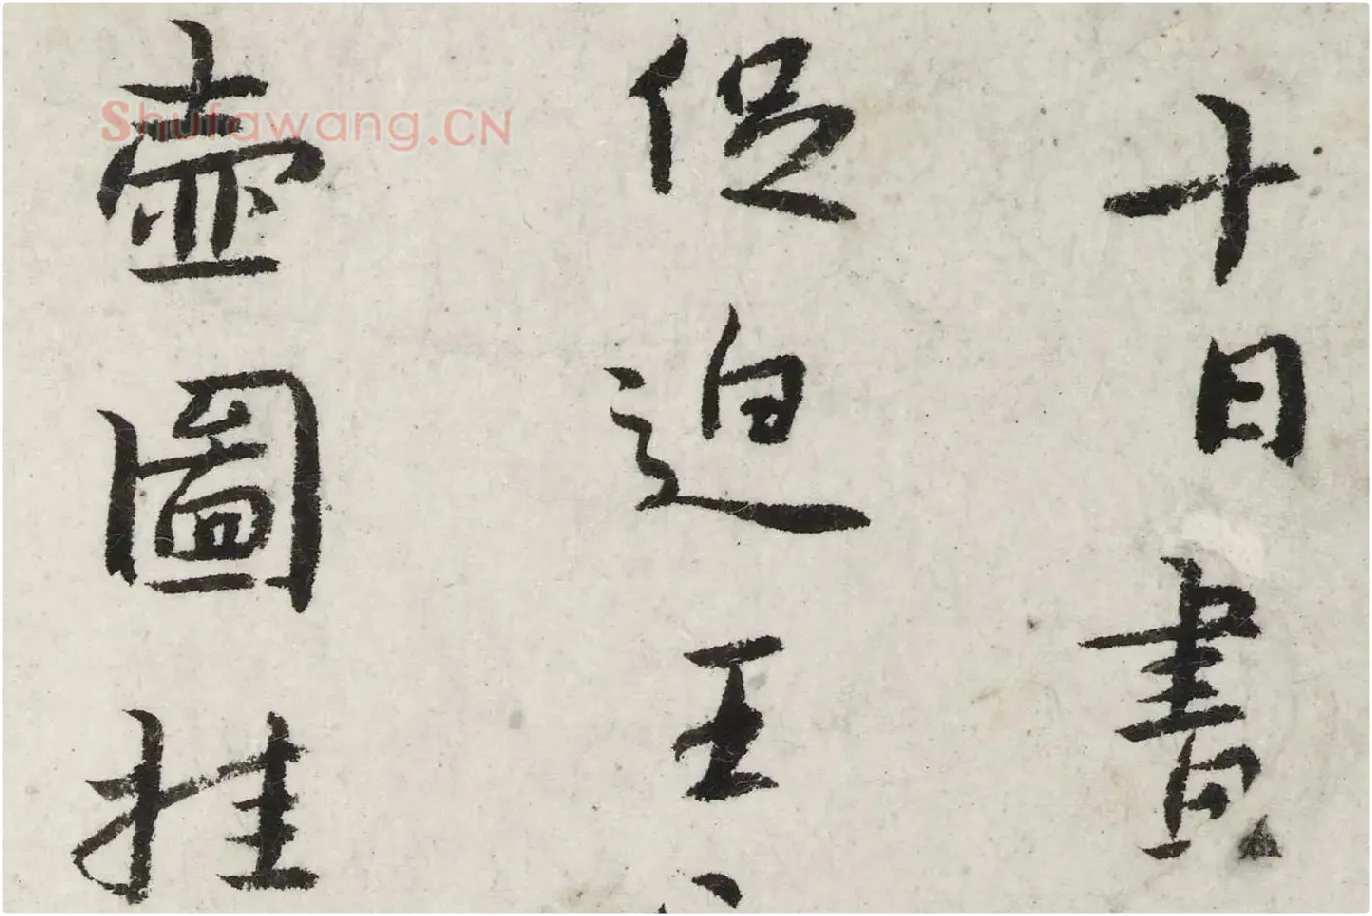 十日畫
促迫王
壺圖挂
Shufawang.CN